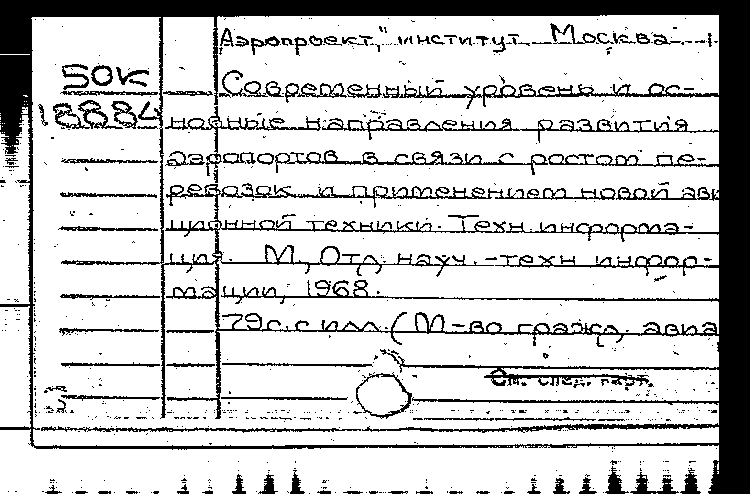 Аэропроект," институт. Москва.
50К
18884
Современный уровень и ос-
новные направления развития
аэропортов в связи с ростом пе-
ревозок и применением новой ави
ционной техники. Техн. информа-
ция. М., Отд. науч.-техн инфор-
мации, 1968.
79с. с илл. (М-во гражд. авиа
См. спец. карт.